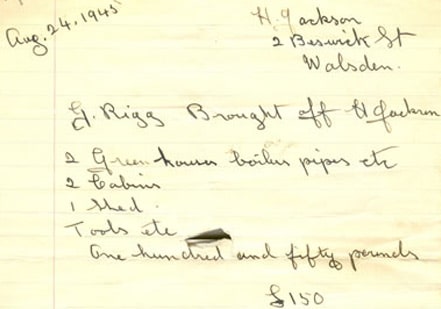 Aug. 24, 1945
H. Jackson
2 Beswick St
Walsden.
G. Rigg Brought off H Jackson
2 Greenhouses boiler pipes etc
2 Cabins
1 Shed.
Tools etc
One hundred and fifty pounds
£150